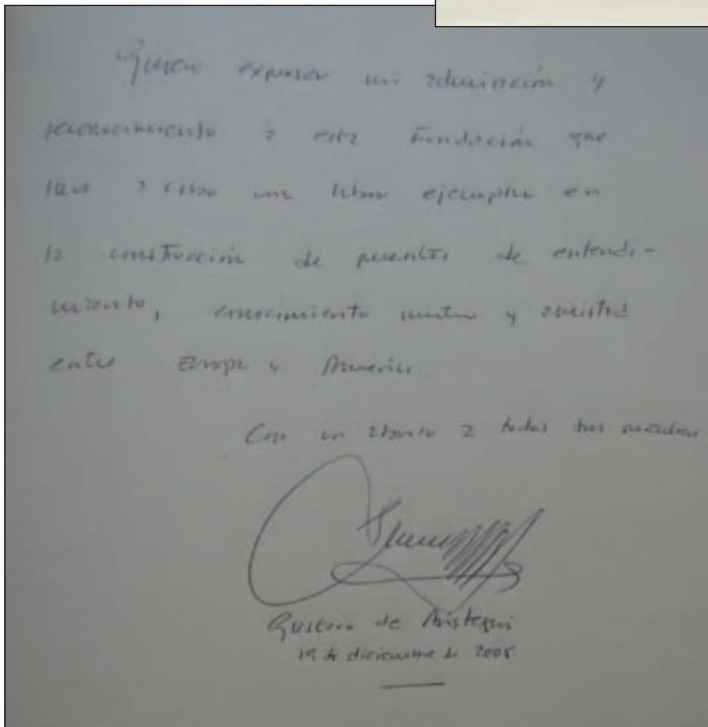 Quiero expresar mi admiración y
reconocimiento a esta Fundación que
lleva a cabo una labor ejemplar en
la construcción de puentes de entendi-
miento, conocimiento mutuo y amistad
entre Europa y America
Con un abrazo a todos sus miembros
Gustavo de Arístegui
19 de diciembre de 2008